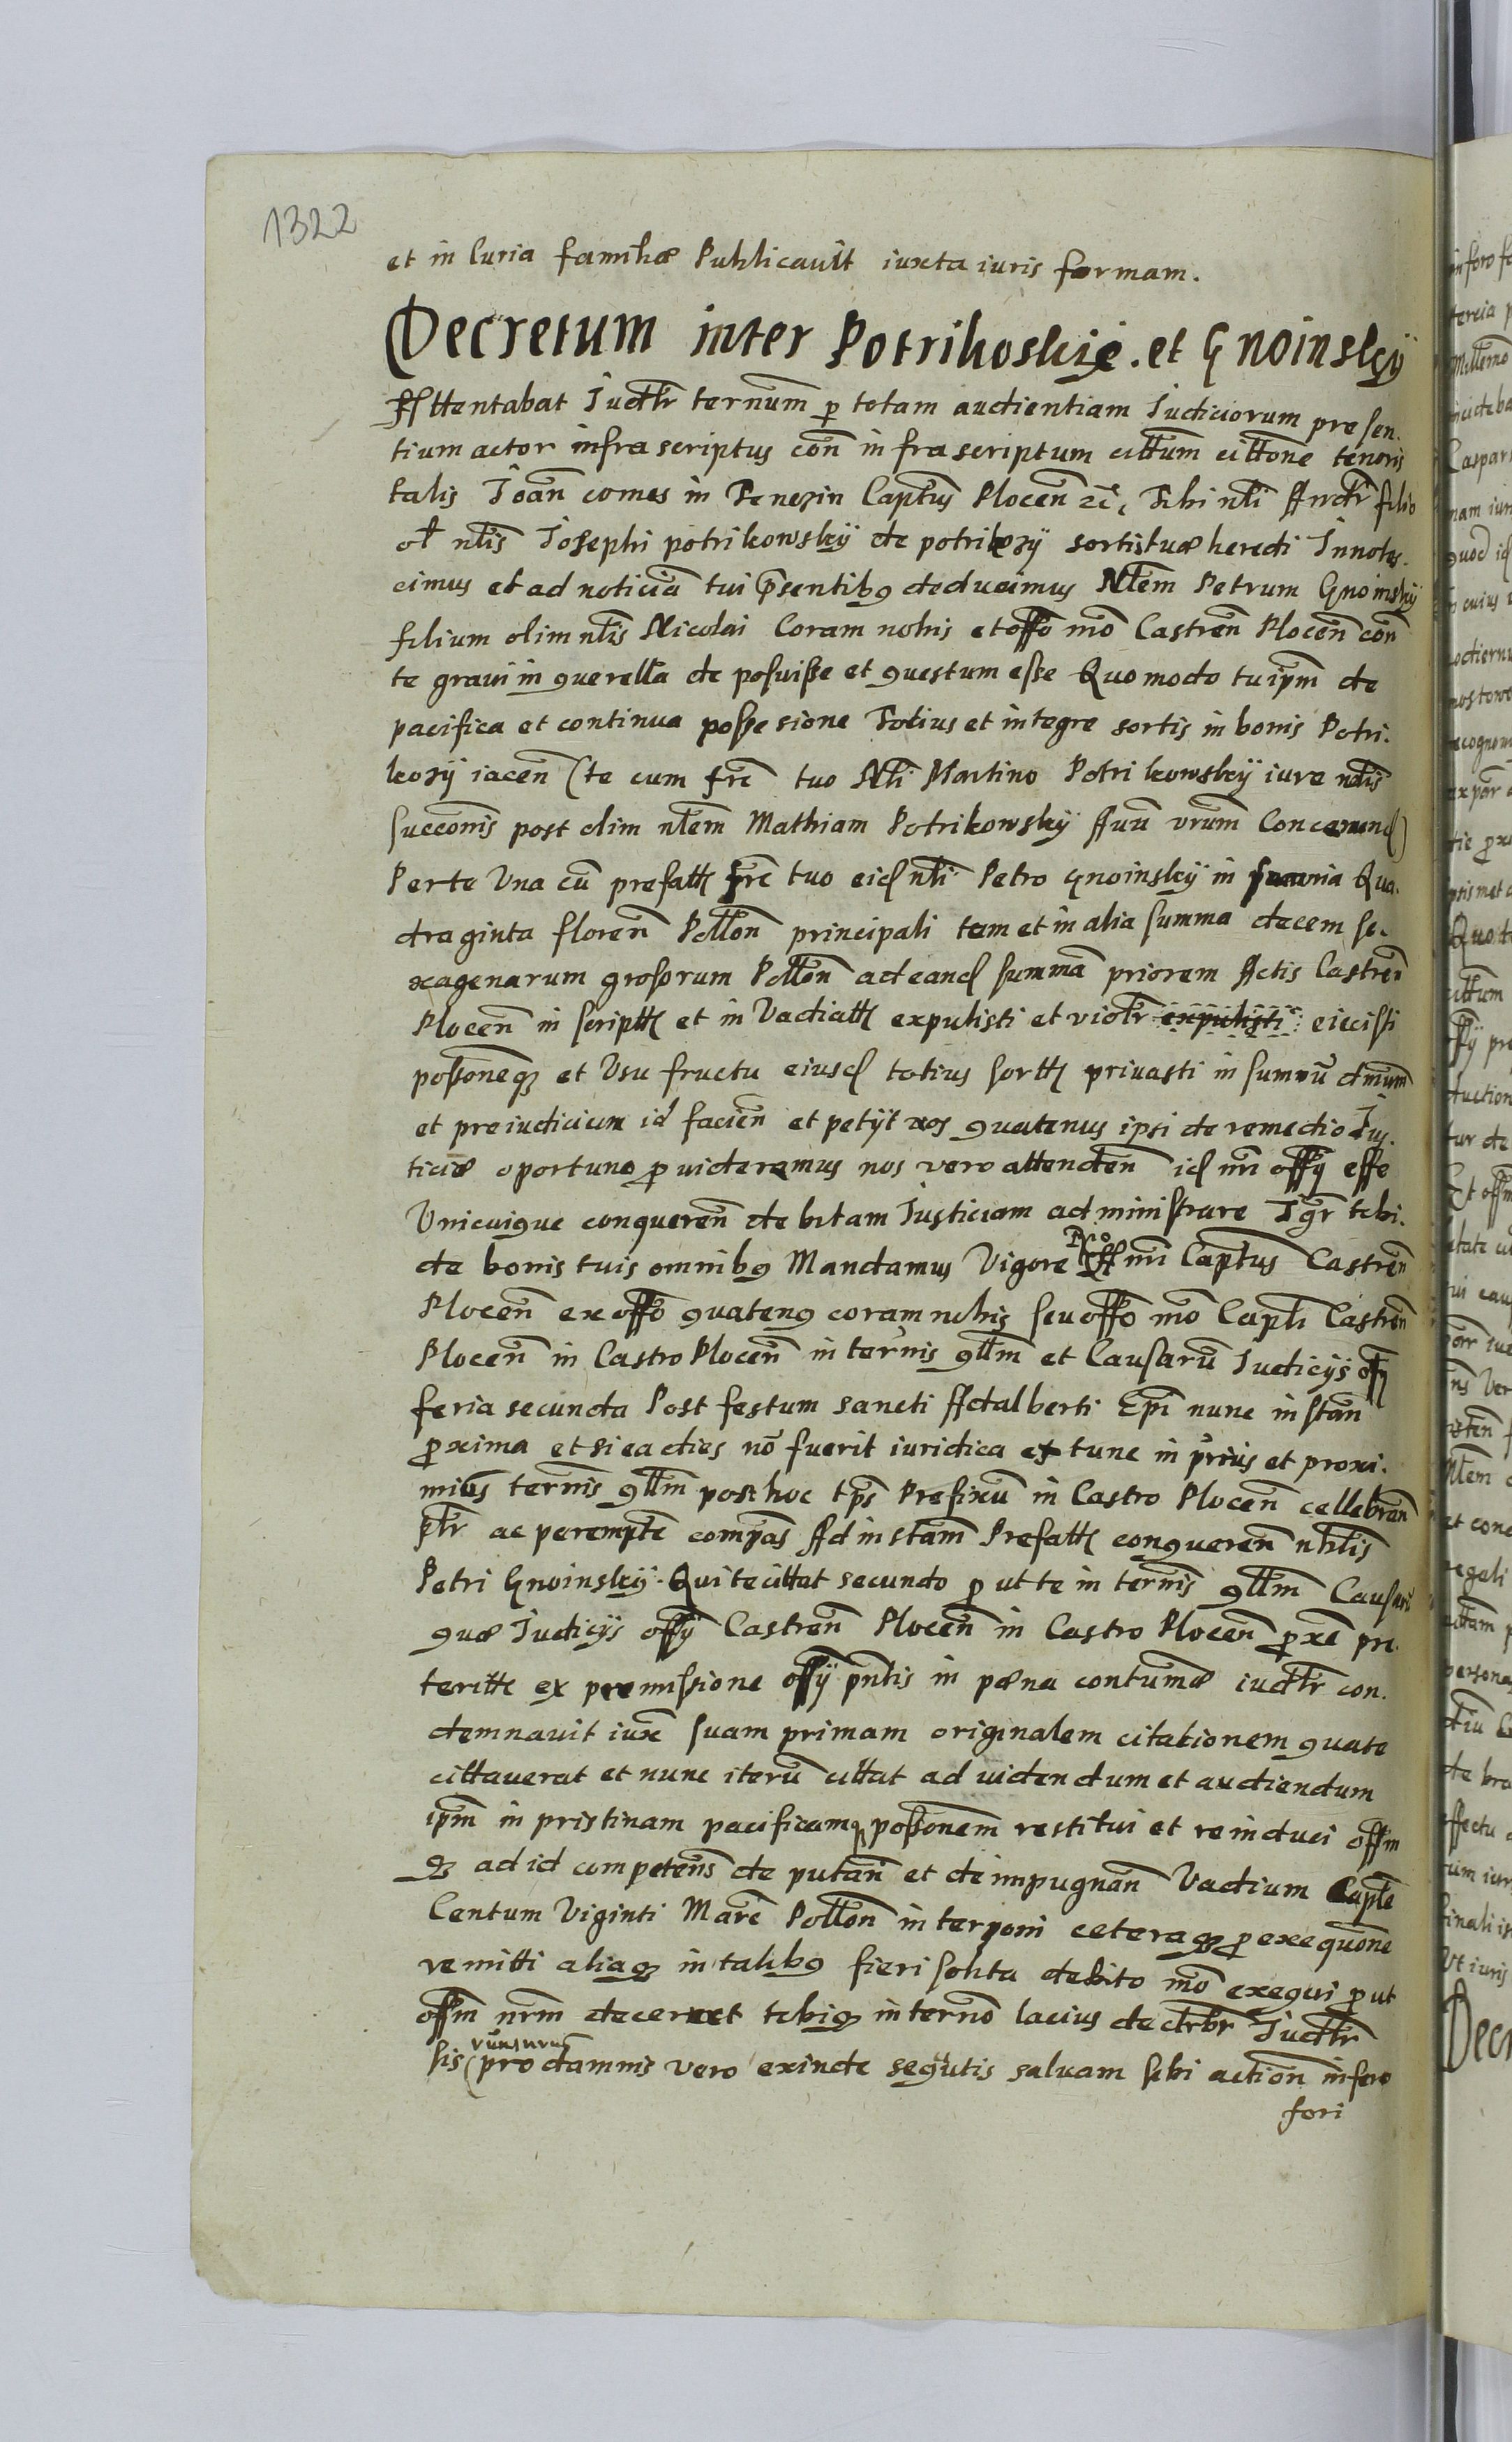 1322
et in Curia familiæ Publicavit iuxta iuris formam.
Decretum inter Potrikoskie. et Gnoinsky
Attentabat Iudtr ternum p totam audientiam Iudiciorum presen.
tium actor infrascriptus con infrascriptum cittum cittone tenoris
talis Joan comes in Tenczin Captus Plocen zc, Tibi nli Andr filio
ol nlis Josephi potrikowsky de potrikozy sortis tuæ heredi Innotes.
cimus et ad noticia tui psentibq deducimus Nlem Petrum Gnoinsky
filium olim nlis Nicolai Coram nobis et offo nro Castren Plocen con
te graui in querella deposuisse et questum esse Quomodo tu ipm de
pacifica et continua possesione Totius et integre sortis in bonis Potri.
kozy iacen (te cum fre tuo Nli Martino Potrikowsky iure nalis
succonis post olim nlem Mathiam Potrikowsky fruu vrum Concernend)
Per te Una cu prefatt fre tuo eid nli Petro gnoinsky in summa Qua.
draginta floren Pollon principali tam et in alia summa decem se.
xagenarum grosorum Pollon ad eand summa priorem Actis Castren
Plocen inscriptt et in Vadiatt expulisti et violtr expulisti eiecisti
possoneqz et Usu fructu eiusd totius sortt privasti in summu dmnum
et preiudicium id facien et petyt nos quatenus ipsi de remedio Ius.
ticiæ oportuno puideremus nos vero attenden id nri offy esse
Unicuique conqueren debitam Iusticiam administrare Igr tibi.
de bonis tuis omnibq Mandamus Vigore Offi nri Captus Castren
Plocen ex offo quatenq coram nobis seu offo nro Capli Castren
Plocen in Castro Plocen in ternis qllm et Causaru Iudicijs offy
feria secunda Post festum sancti Adalberti Epi nunc instan
pxima et si ea dies no fuerit iuridica ex tunc in prius et proxi.
mius ternis qllm post hoc tps Prefixu in Castro Plocen cellebran
ptr ac perempte compas Ad instam Prefatt conqueren nblis
Petri Gnoinsky. Qui te cittat secundo p ut te in ternis qllm Causaru
quæ Iudicijs offy Castren Plocen in Castro Plocen pxe pre.
teritt ex premissione offy pntis in pæna contumæ iudtr con.
demnavit iuxe suam primam originalem citationem qua te
cittaverat et nunc iteru cittat ad uidendum et audiendum
ipm in pristinam pacificamqz possonem restitui et reinduci offm
qz ad id competens deputan et de impugnan Vadium Caple
Centum Viginti Marc Pollon interponi ceteraqz p exequone
remitti aliaqz in talibq fieri solita debito mo exequi put
offm nrm decernet tibiqz in terno lacius declrbr Iudtr
sis pro damnis vero exinde sequtis salvam sibi action in foro
fori